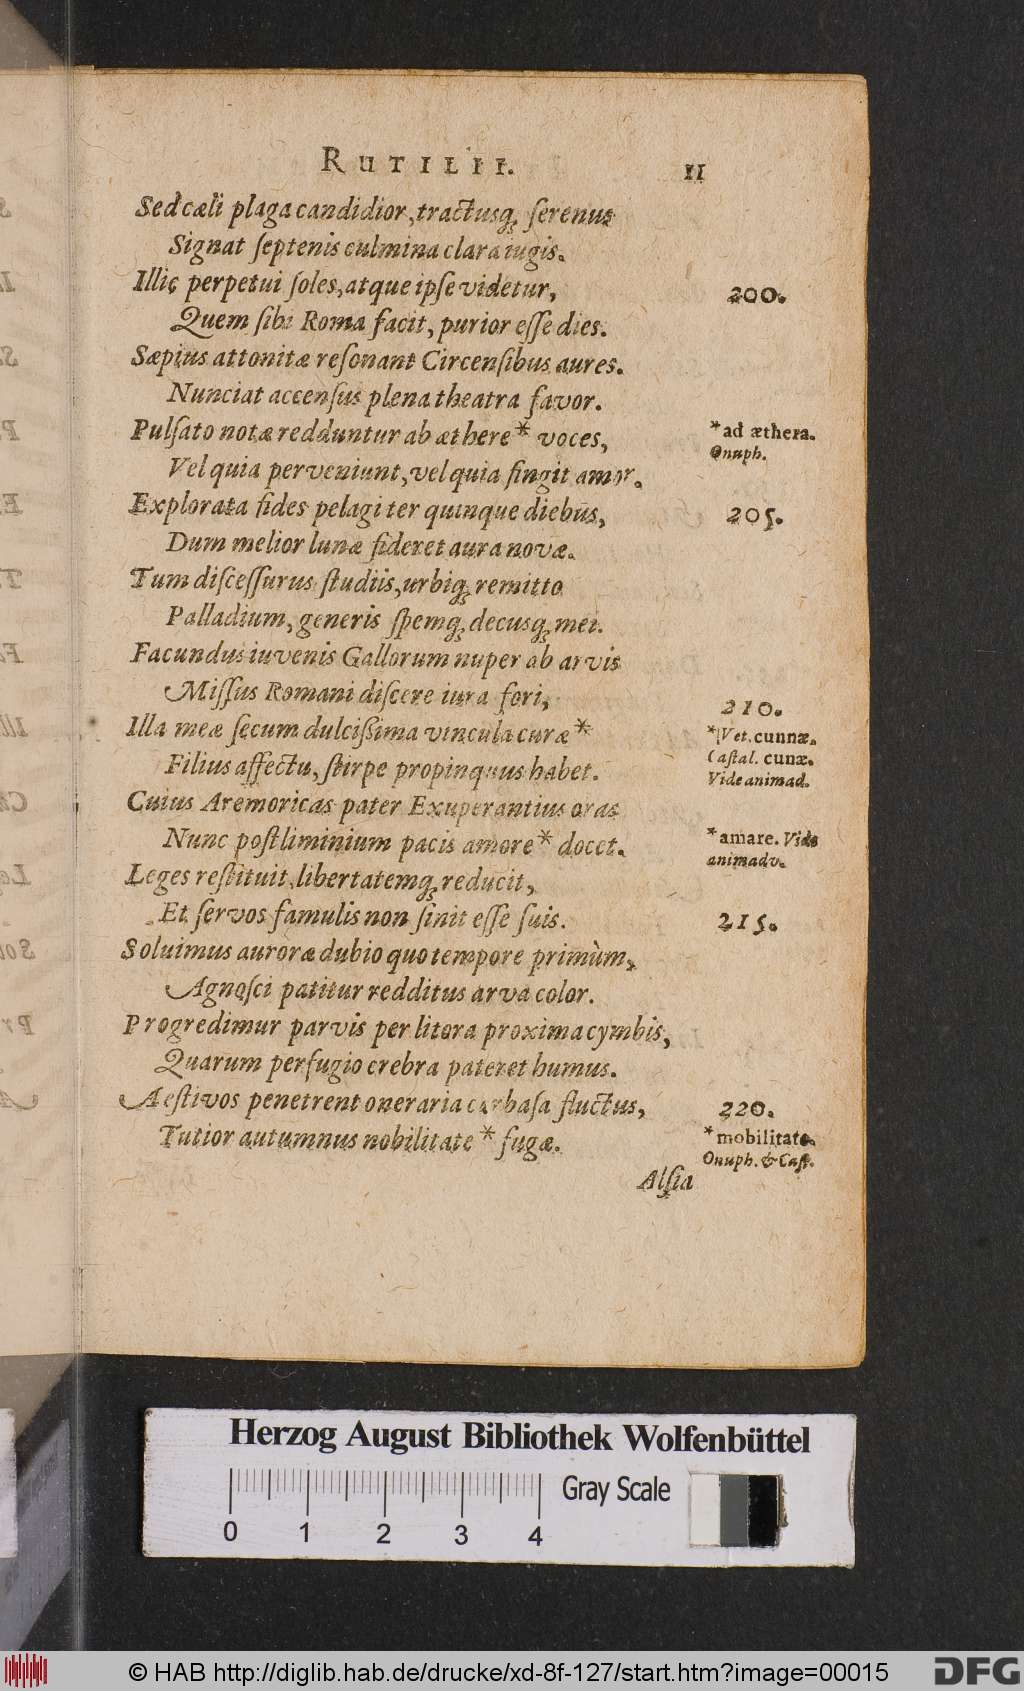 RUTILII. 11
Sed cæli plaga candidior, tractusq́ꝫ ſerenus
Signat ſeptenis culmina clara iugis.
Illic perpetui ſoles, atque ipſe videtur, 200.
Quem ſibi Roma facit, purior eſſe dies.
Sæpius attonitæ reſonant Circenſibus aures.
Nunciat accenſus plena theatra favor.
Pulſato notæ redduntur ab æthere* voces, *ad æthera.
Onuph.
Vel quia perveniunt, vel quia fingit amor.
Explorata fides pelagi ter quinque diebus, 205.
Dum melior lunæ fideret aura novæ.
Tum diſceſſurus ſtudiis, urbiqꝫ remitto
Palladium, generis ſpemqꝫ decusqꝫ mei.
Facundus iuvenis Gallorum nuper ab arvis
Miſſus Romani diſcere iura fori, 210.
Illa meæ ſecum dulciſſima vincula curæ* *Vet. cunnæ.
Caſtal. cunæ.
Filius affectu, ſtirpe propinquus habet. Vide animad.
Cuius Aremoricas pater Exuperantius oras
Nunc poſtliminium pacis amore* docet. *amare. Vide
animadv.
Leges reſtituit, libertatemqꝫ reducit,
Et ſervos famulis non ſinit eſſe ſuis. 215.
Soluimus auroræ dubio quo tempore primùm,
Agnoſci patitur redditus arva color.
Progredimur parvis per litora proxima cymbis,
Quarum perfugio crebra pateret humus.
Aeſtivos penetrent oneraria carbaſa fluctus, 220.
Tutior autumnus nobilitate* fugæ. *mobilitate.
Onuph. & Caſt.
Alſia
Herzog August Bibliothek Wolfenbüttel
Gray Scale
0 1 2 3 4
© HAB http://diglib.hab.de/drucke/xd-8f-127/start.htm?image=00015 DFG